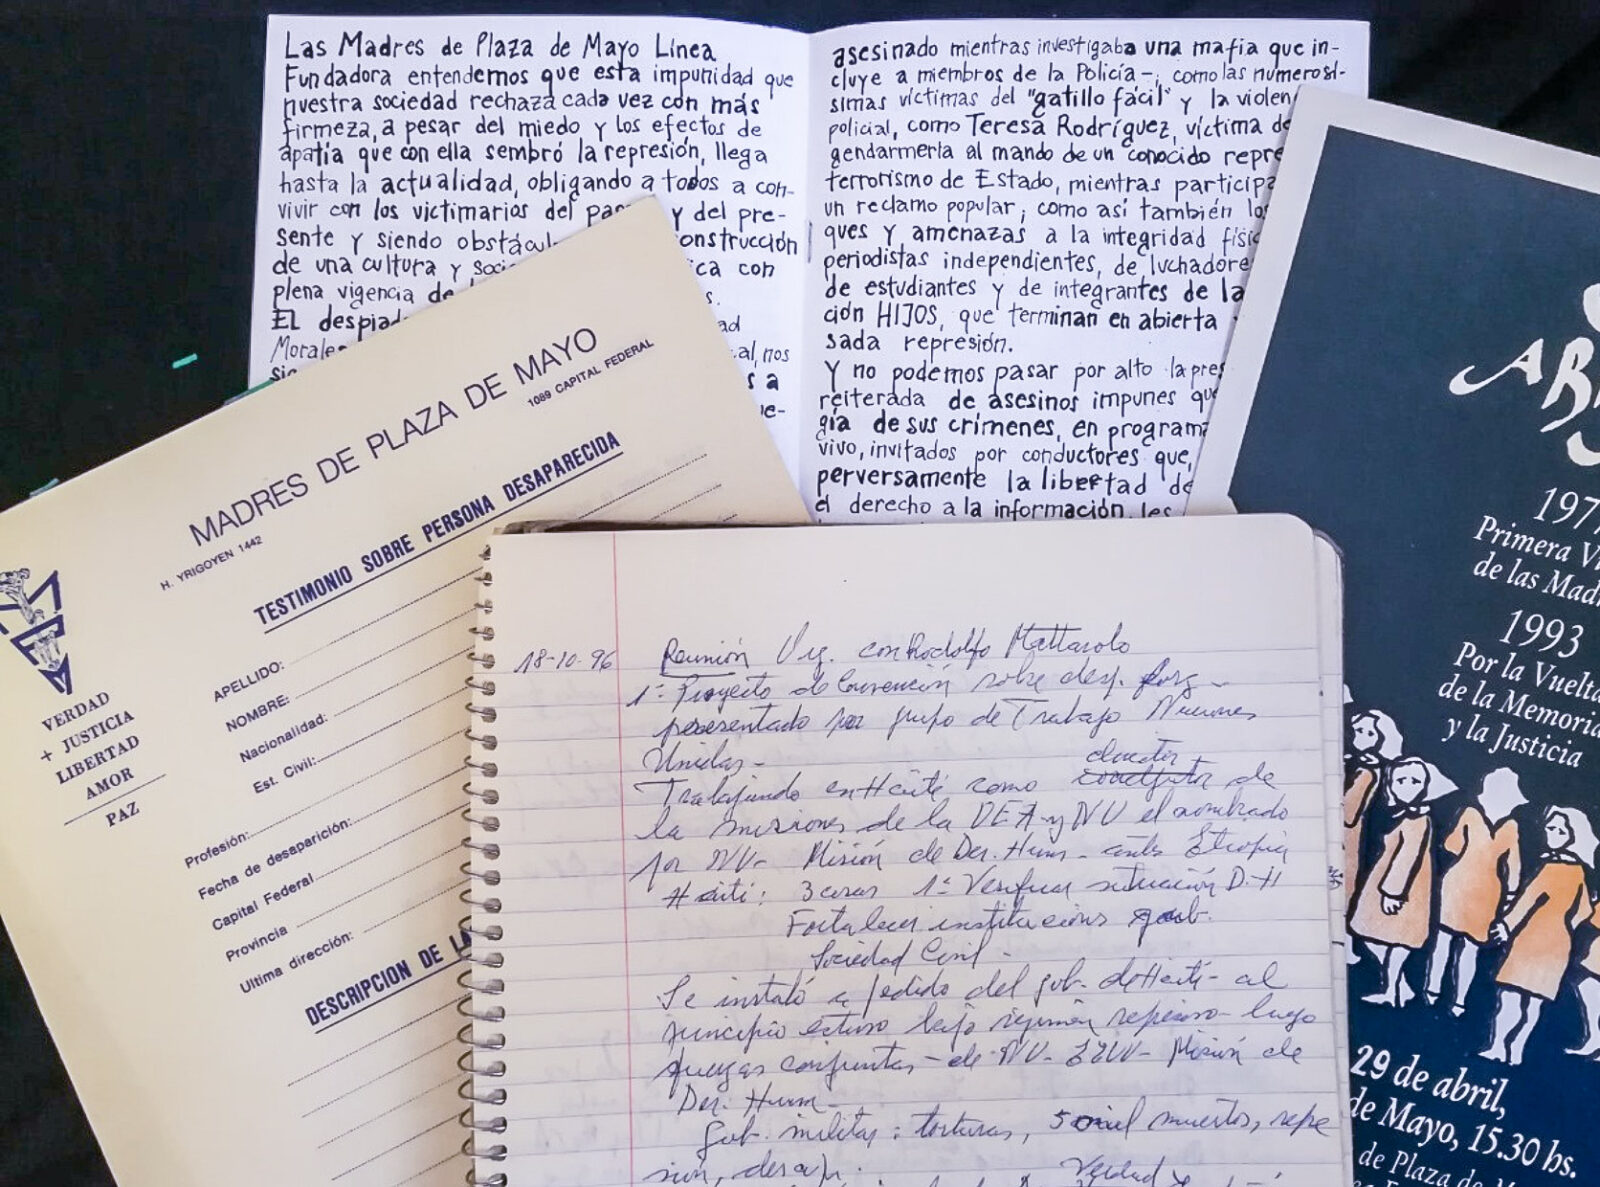 Las Madres de Plaza de Mayo Línea
Fundadora entendemos que esta impunidad que
nuestra sociedad rechaza cada vez con más
firmeza, a pesar del miedo y los efectos de
apatía que con ella sembró la represión, llega
hasta la actualidad, obligando a todos a con-
vivir con los victimarios del y del pre-
sente y siendo
de una cultura y con
plena vigencia de
El
asesinado mientras investigaba una mafia que in-
cluye a miembros de la Policía-, como las numerosí-
simas víctimas del "gatillo fácil" y la
policial, como Teresa Rodríguez, víctima
gendarmería al mando de un conocido
terrorismo de Estado, mientras
un reclamo popular, como así también
ques y amenazas a la integridad
periodistas independientes, de
de estudiantes y de integrantes de la
ción HIJOS, que terminan en abierta
sada represión.
Y no podemos pasar por alto la
reiterada de asesinos impunes
gía de sus crímenes, en
vivo, invitados por conductores que,
perversamente la libertad
el derecho a la información, les
MADRES DE PLAZA DE MAYO
H. YRIGOYEN 1442
1089 CAPITAL FEDERAL
TESTIMONIO SOBRE PERSONA DESAPARECIDA
APELLIDO:
NOMBRE:
Nacionalidad:
Est. Civil:
Profesión:
Fecha de desaparición:
Capital Federal
Provincia
Ultima dirección:
DESCRIPCION DE
VERDAD
+ JUSTICIA
LIBERTAD
AMOR
PAZ
18-10-96
Reunión con Rodolfo Mattarolo
1º Proyecto de Convención sobre desp. forz-
presentado por grupo de Trabajo Naciones
Unidas-
director
Trabajando en Haití como de
la misiones de la OEA y NU el nombrado
por NU- Misión de Der. Hum- antes Etiopía
Haití: 3 cosas 1º Verificar situación D.H
Fortalecer instituciones gob.
Sociedad Civil-
Se instaló a pedido del gob. de Haití- al
principio estuvo bajo régimen luego
fuerzas conjuntas- de NU- Misión de
Der. Hum-
Gob. militar: torturas, 5 mil muertos, repre
sión,
Verdad
1977
Primera
de las
1993
Por la Vuelta
de la Memoria
y la Justicia
29 de abril,
de Mayo, 15.30 hs.
de Plaza de